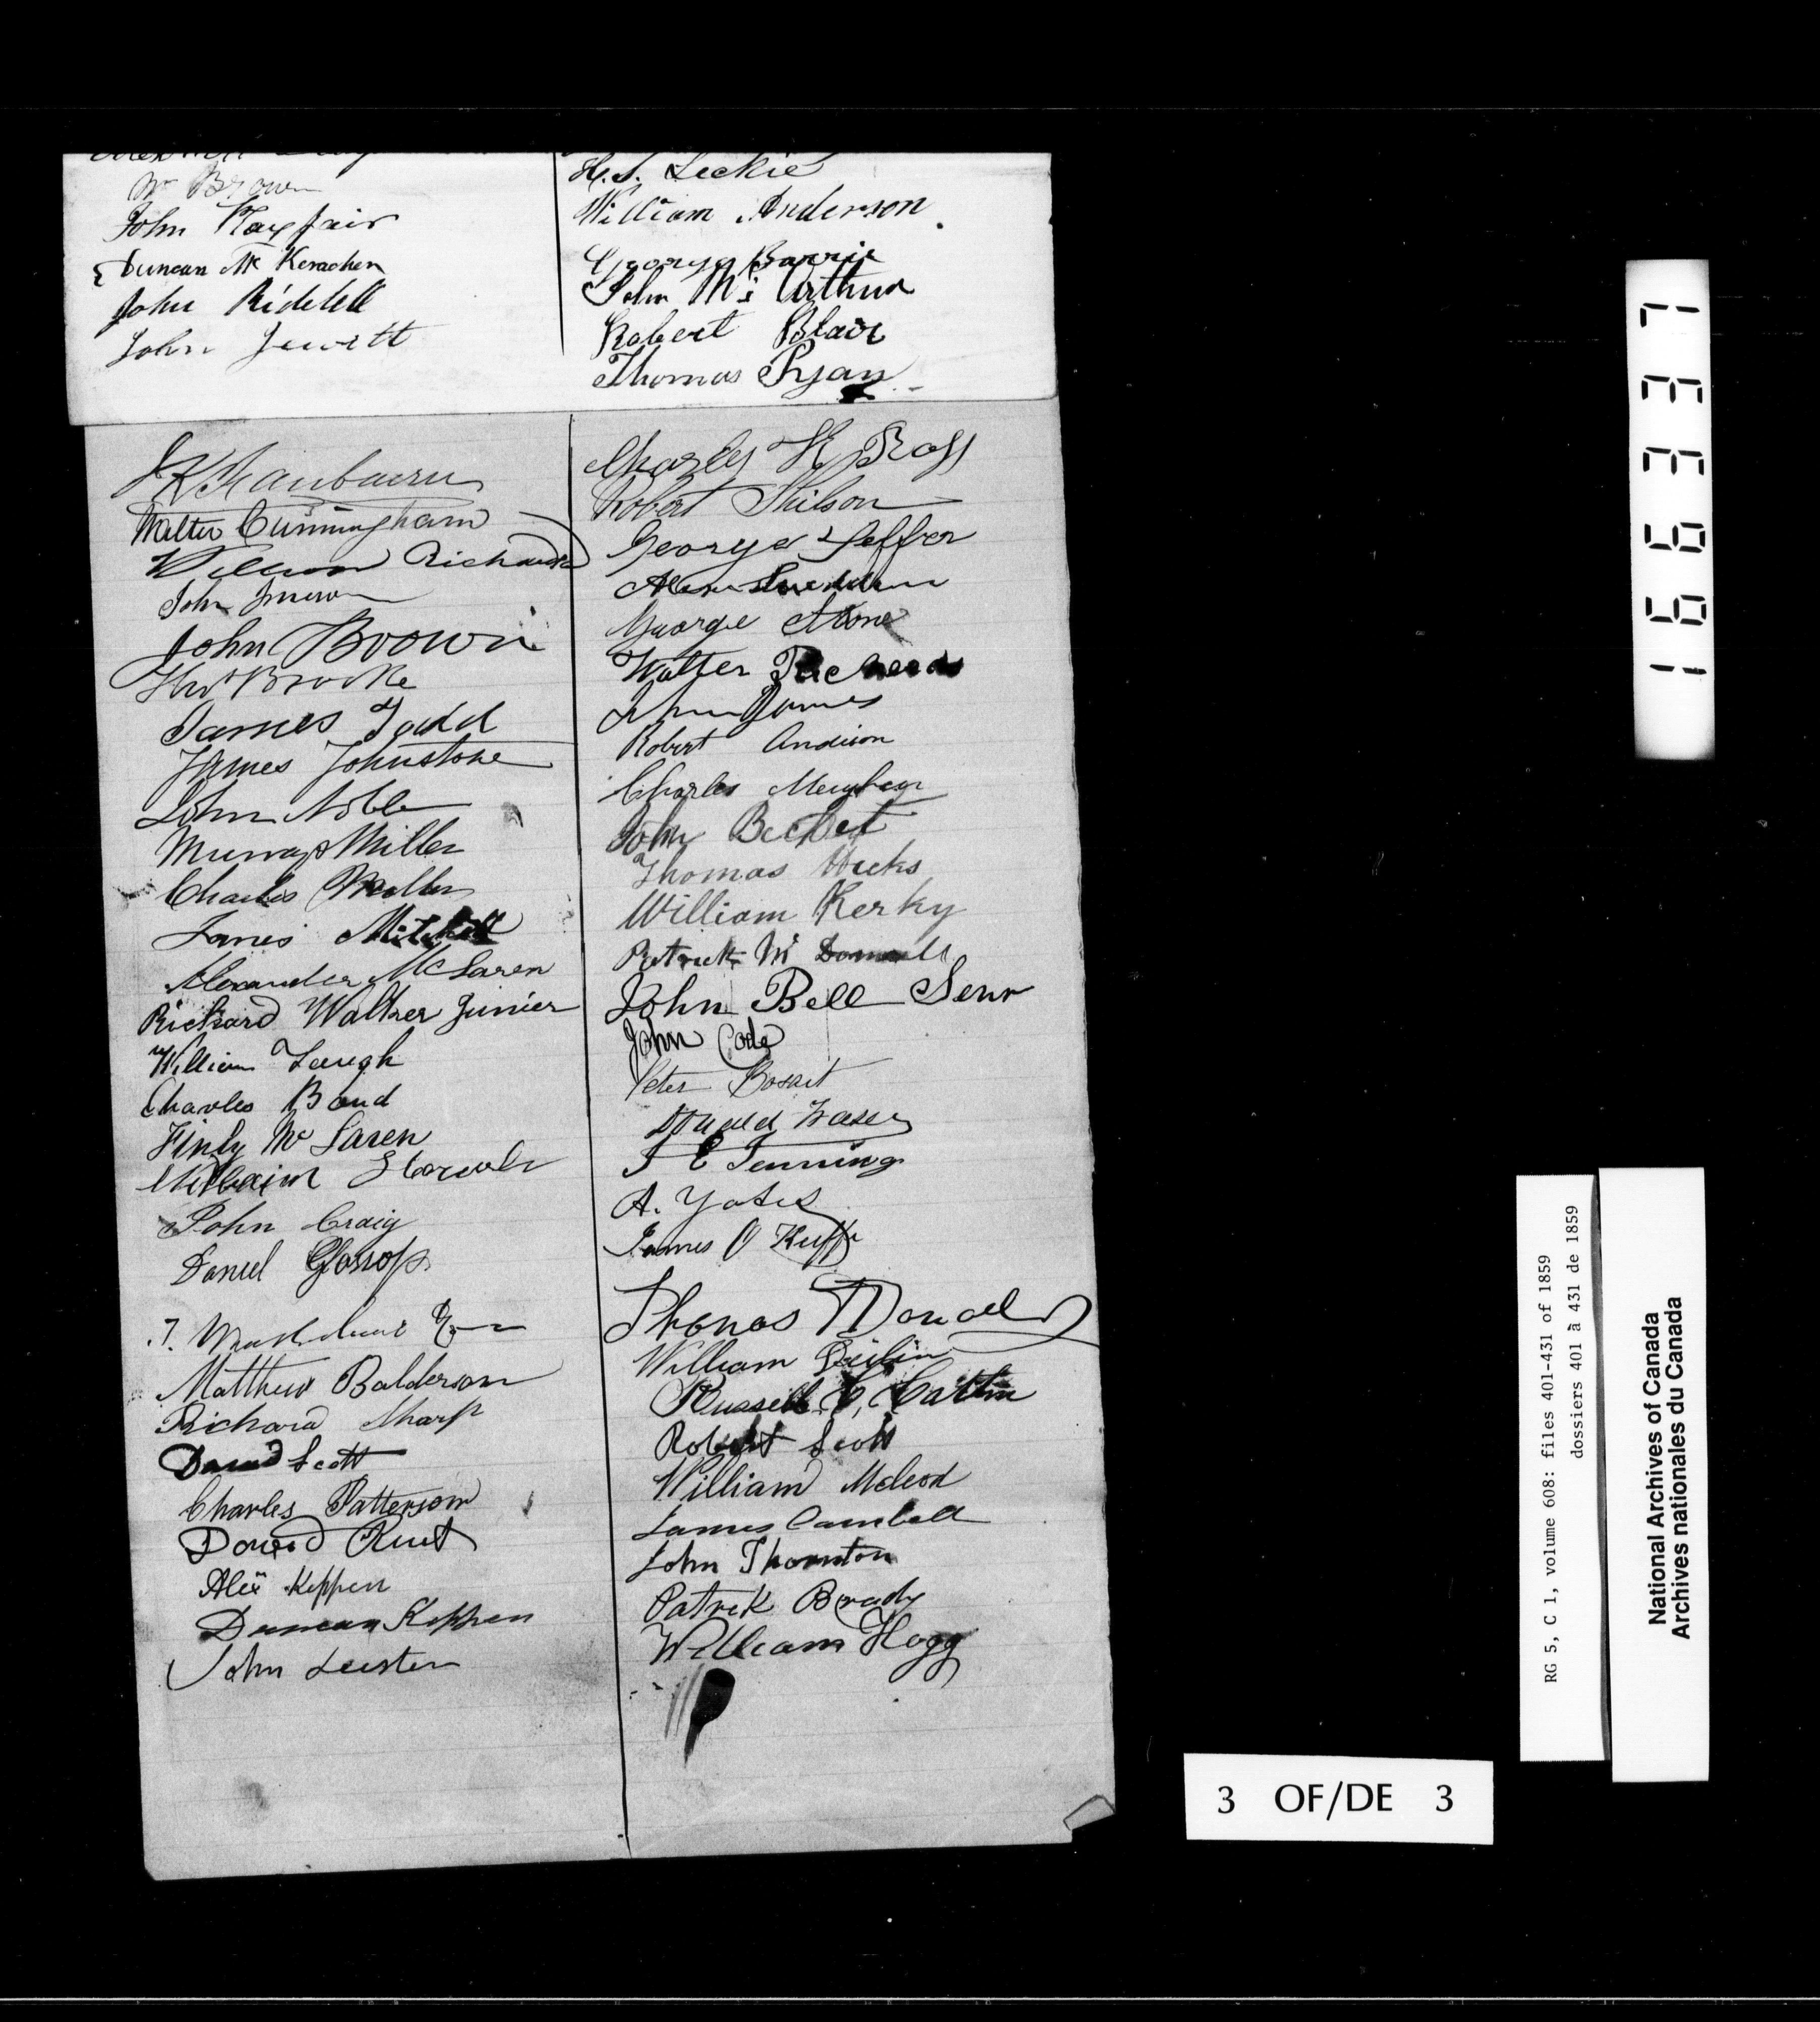 Wm Brown
John Playfair
Duncan McKerachen
John Riddell
John Jewett
H. S. Leckie
William Anderson
George Barrie
John McArthur
Robert Blair
Thomas Ryan
Walter Cunningham
William Richards
John
John Brown
Thos Brooke
James Todd
James Johnstone
John Noble
Murray Miller
Charles Miller
James Mitchell
Alexander McLaren
Richard Walker Junier
William Laugh
Charles Baud
Finly McLaren
William
John Craig
Daniel Glossop
Matthew Balderson
Richard Sharp
David Scott
Charles Patterson
David
Alex Keppen
Duncan Keppen
John Lester
Charles K Ross
Robert Stilson
George Jeffrer
George Stone
Walter Richards
James
Robert Andison
Charles Meighen
John Becket
Thomas Hicks
William Kerky
Patrick McDonnell
John Bell Senr
John Code
Peter Bosart
Donald Fraser
A. Yates
James O Keiffe
Thomas McDonald
William
Russell C, Catlin
Robert Scott
William Mcleod
James Cambell
John Thornton
Patrick Brady
William Hogg
166337
3 OF/DE 3
RG 5, C 1, volume 608: files 401-431 of 1859
dossiers 401 à 431 de 1859
National Archives of Canada
Archives nationales du Canada